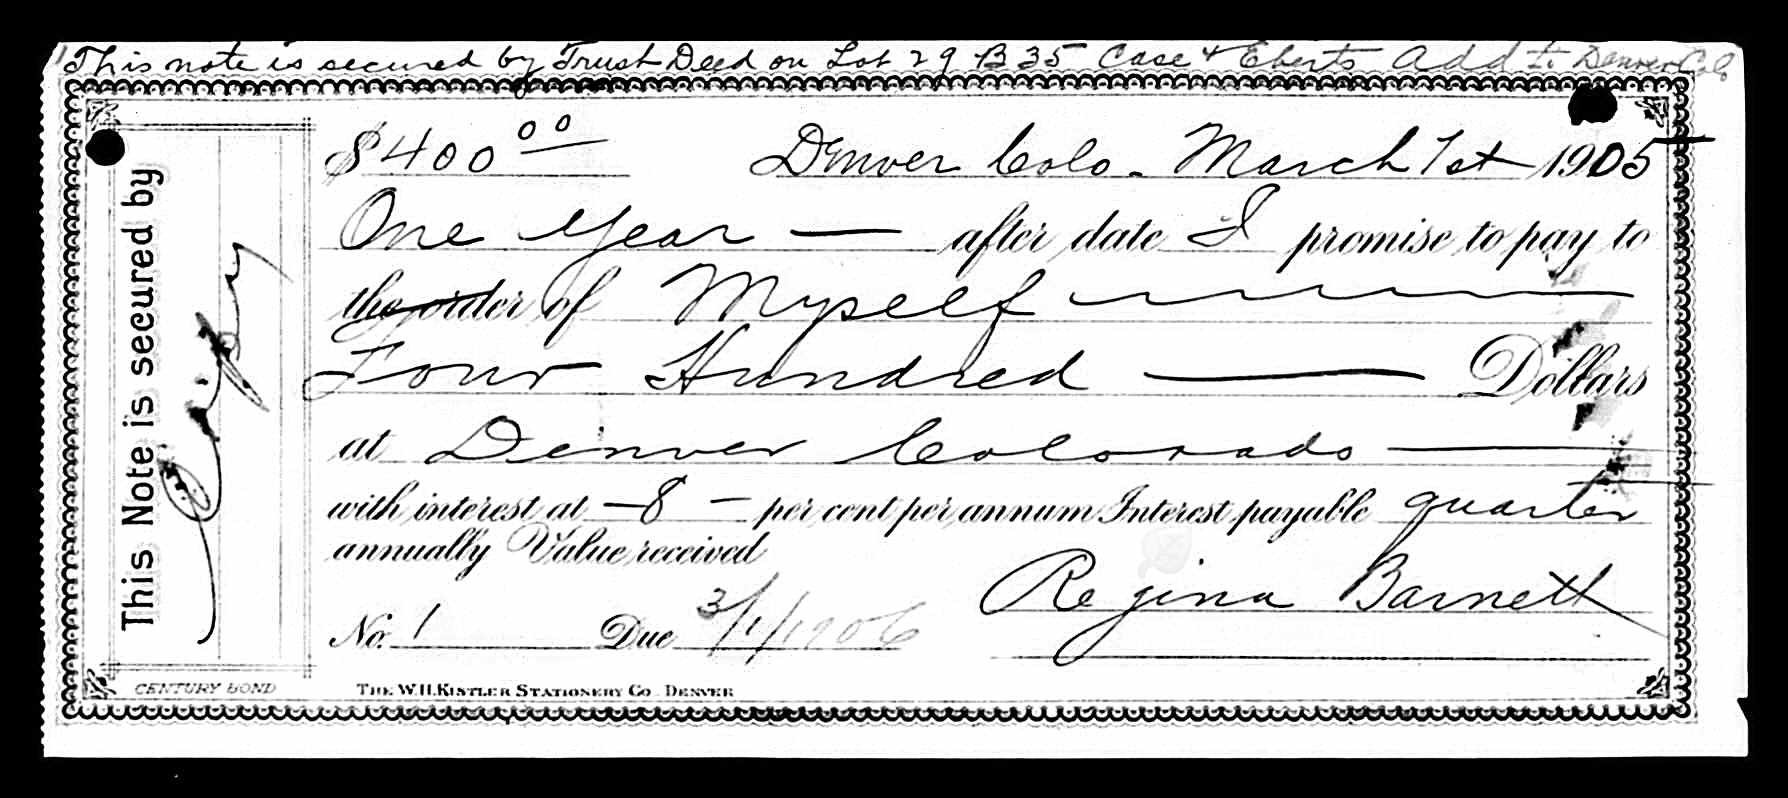 This note is secured by Trust Deed on Lot 29 B 35 Case & Eberts Add to Denver Col.
This Note is secured by
Copy
$400 00 Denver Colo. March 1st 1905
One Year — after date I promise to pay to
the order of Myself
Four Hundred — Dollars
at Denver Colorado —
with interest at — 8 — per cent per annum Interest payable quarter
annually Value received
Regina Barnett
No. 1 Due 3/1/1906
CENTURY BOND THE W.H. KISTLER STATIONERY CO. DENVER